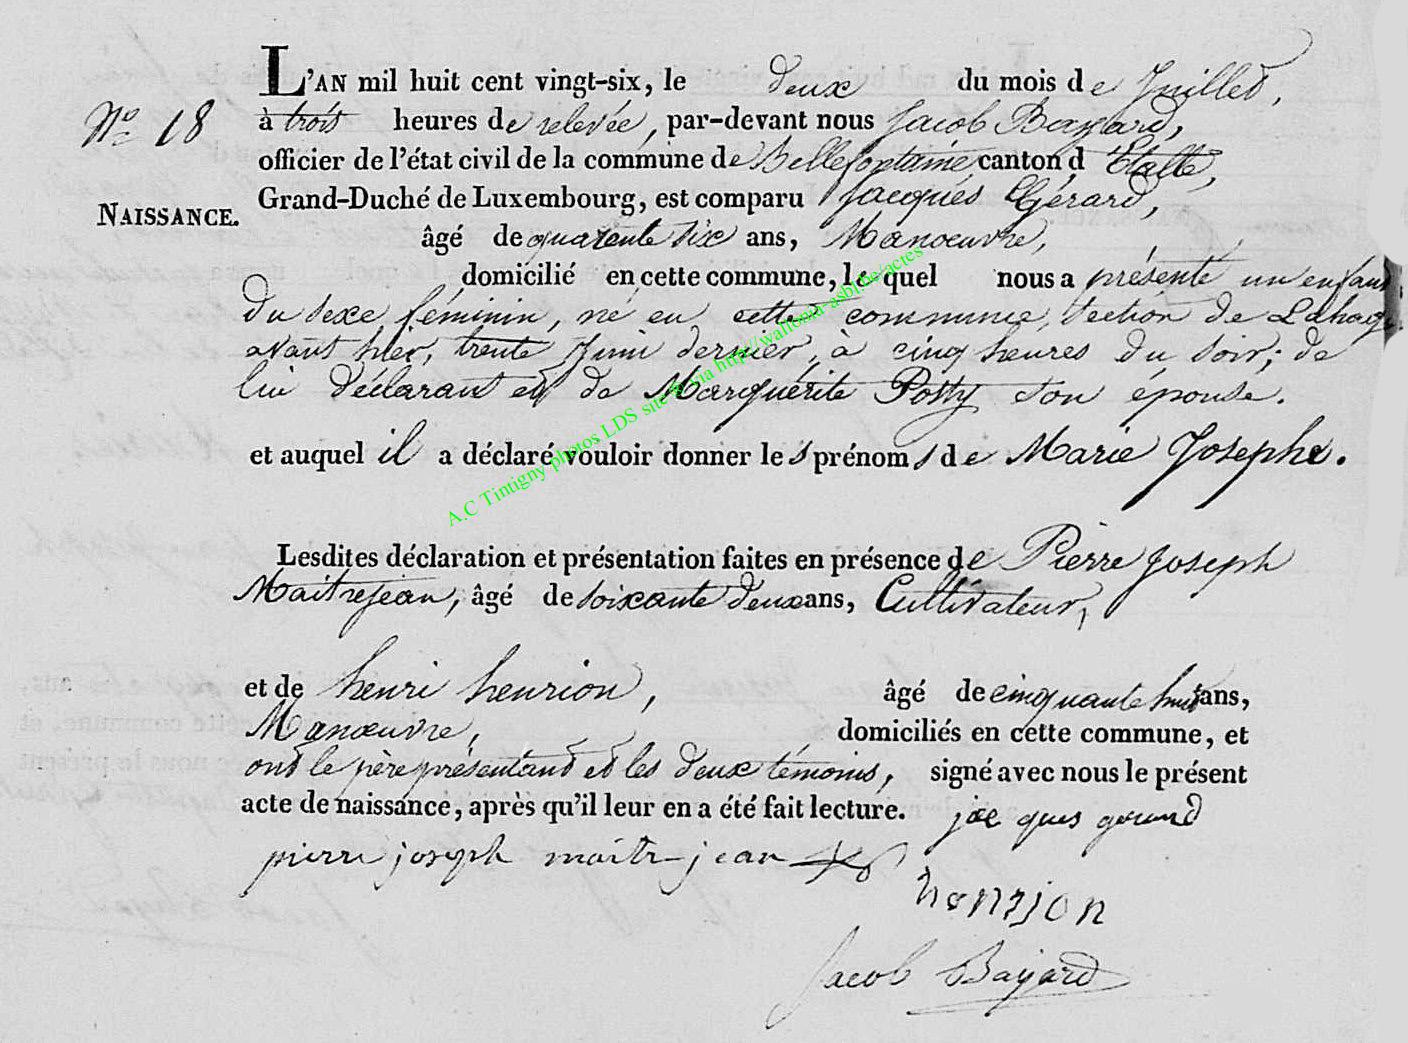 L'AN mil huit cent vingt-six, le deux du mois de Juillet,
N.o 18
à trois heures de relevée, par-devant nous Jacob Bayard,
officier de l'état civil de la commune de Bellefontaine canton d'Etalle,
Grand-Duché de Luxembourg, est comparu Jacques Gérard,
NAISSANCE.
âgé de quarente six ans, Manoeuvre,
domicilié en cette commune, le quel nous a présenté un enfant
du sexe féminin, né en cette commune, section de Lahage
avant hier, trente Juin dernier, à cinq heures du soir; de
lui déclarant et de Marguérite Posty son épouse.
et auquel il a déclaré vouloir donner les prénoms de Marie Josephe.
A.C Tintigny photos LDS site via http://wallonia-asbl.be/actes
Lesdites déclaration et présentation faites en présence de Pierre Joseph
Maitrejean, âgé de soixante deux ans, Cultivateur,
et de henri henrion, âgé de cinquante huit ans,
Manœuvre, domiciliés en cette commune, et
ont le père présentant et les deux témoins, signé avec nous le présent
acte de naissance, après qu'il leur en a été fait lecture. jacques gerard
pierre joseph maitrejean
henrion
Jacob Bayard